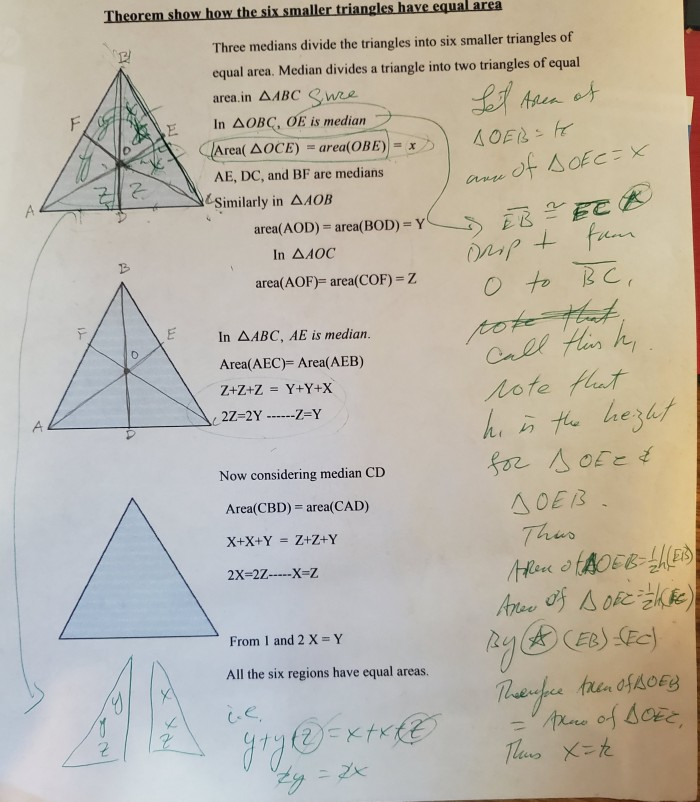 Theorem show how the six smaller triangles have equal area
Three medians divide the triangles into six smaller triangles of
equal area. Median divides a triangle into two triangles of equal
area.in △ABC Since
In △OBC, OE is median
Area( △OCE) = area(OBE) = x
AE, DC, and BF are medians
Similarly in △AOB
area(AOD) = area(BOD) = Y
In △AOC
area(AOF)= area(COF) = Z
B
F
E
O
y
x
y
x
z
z
A
D
C
B
F
E
O
A
D
C
In △ABC, AE is median.
Area(AEC)= Area(AEB)
Z+Z+Z = Y+Y+X
2Z=2Y ------Z=Y
Now considering median CD
Area(CBD) = area(CAD)
X+X+Y = Z+Z+Y
2X=2Z-----X=Z
From 1 and 2 X = Y
All the six regions have equal areas.
y
y
z
x
x
z
i.e.
y+y+z = x+x+z
2y = 2x
Let Area of
△OEB = k
area of △OEC = x
EB ≅ EC ☆
Drop ⊥ from
O to BC,
Note that
call this h₁.
Note that
h₁ is the height
for △OEC &
△OEB.
Thus
Area of △OEB = ½h(EB)
Area of △OEC = ½h(EC)
By ☆ (EB) = (EC)
Therefore Area of △OEB
= Area of △OEC,
Thus x = k